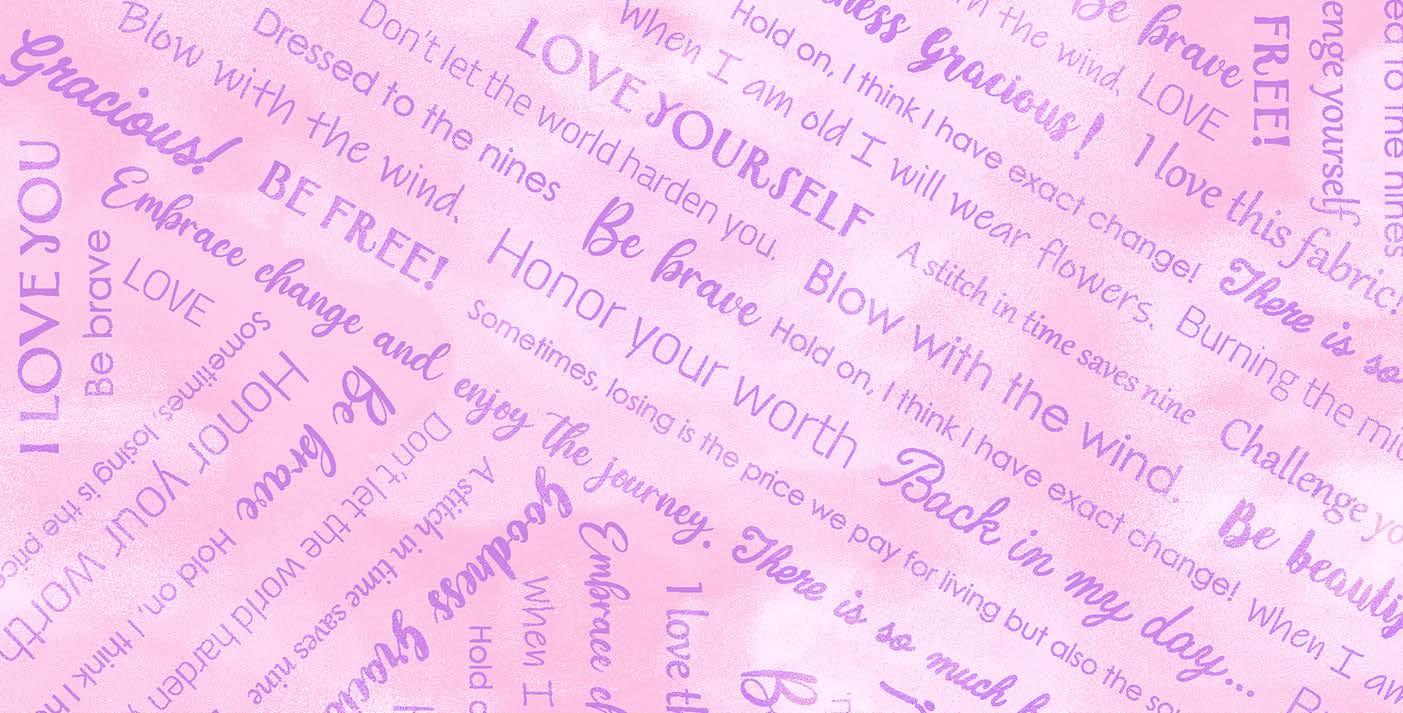 Gracious!
Blow with the wind.
Dressed to the nines
Don't let the world harden you.
LOVE YOURSELF
When I am old I will wear flowers.
Hold on, I think I have exact change!
Gracious!
the wind.
LOVE
Be brave
I love this fabric!
FREE!
yourself
to the nines
I LOVE YOU
Be brave
LOVE
BE FREE!
Embrace change and enjoy the journey.
Honor your worth
Be brave
Blow with the wind.
A stitch in time saves nine
Burning the
There is so
Sometimes, losing is the price we pay for living but also the
Hold on, I think I have exact change!
Challenge
Back in my day...
Be
When I
There is so much
Sometimes, losing is the
Honor your worth
Be brave
Hold on, I think I
Don't let the world harden
A stitch in time saves nine
Goodness
When I
Hold
Embrace
I love